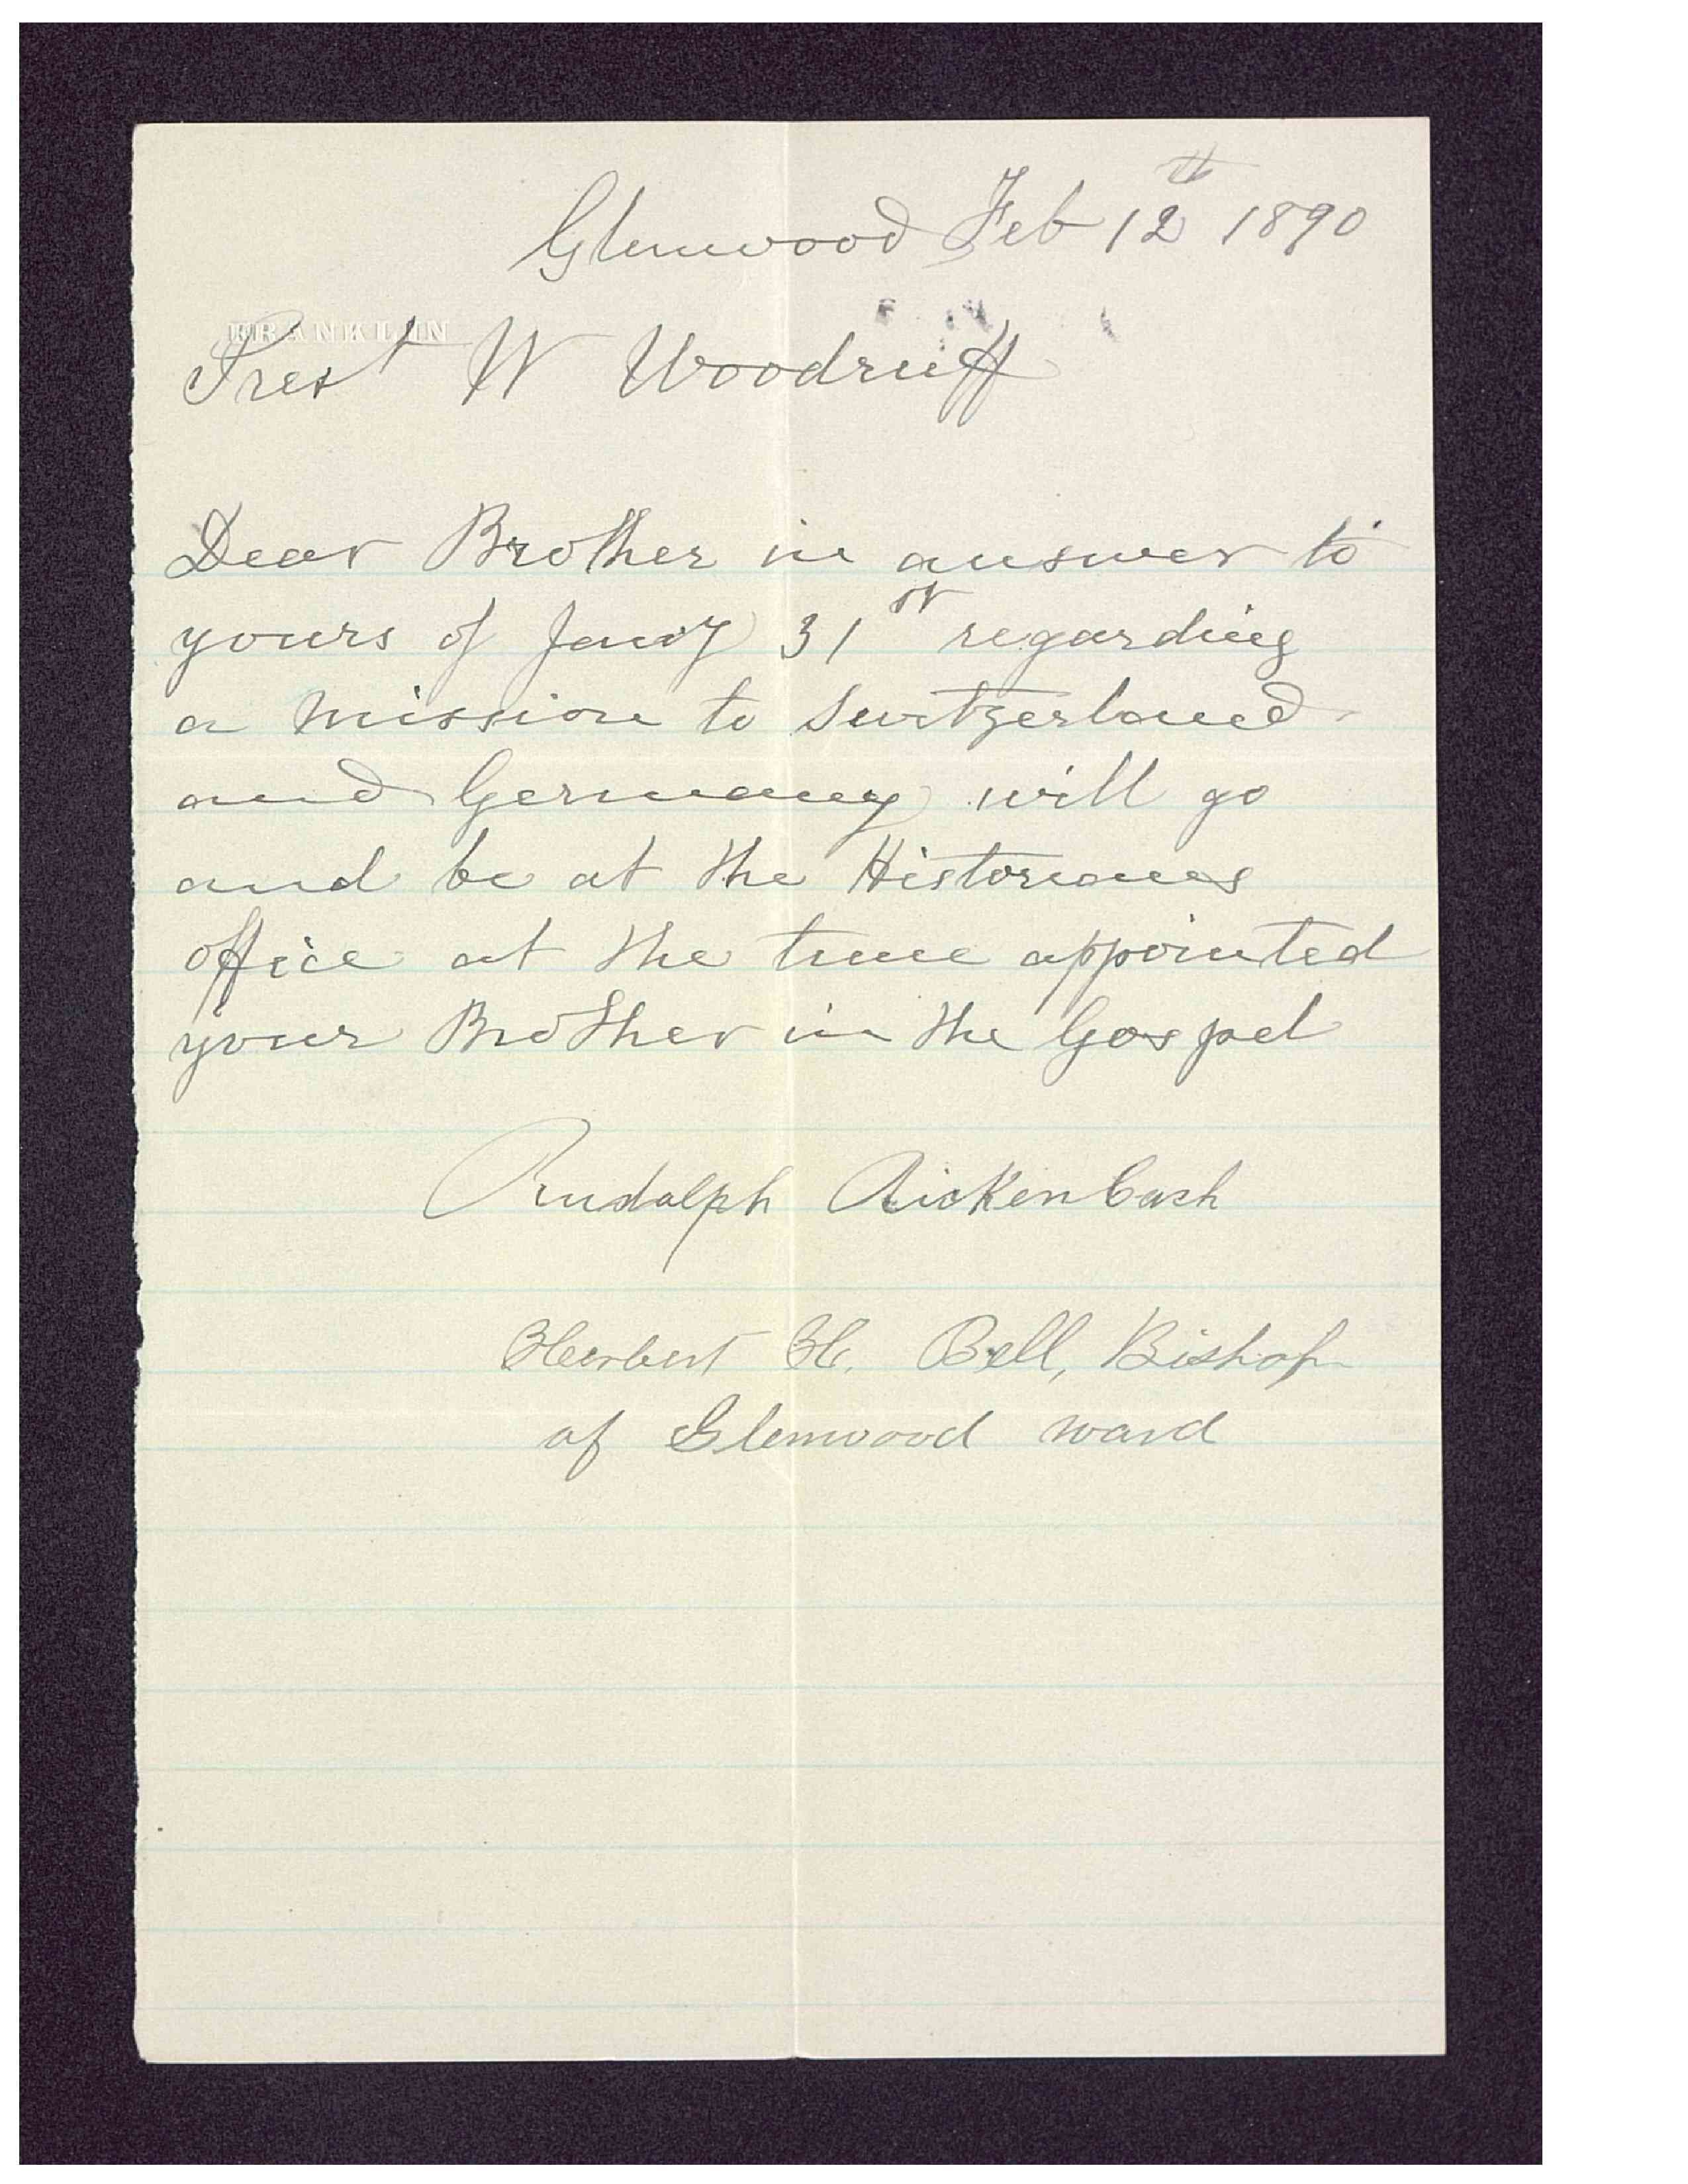 Glenwood Feb 12th 1890
FRANKLIN
Prest W Woodruff
Dear Brother in answer to
yours of Jany 31st regarding
a mission to Switzerland
and Germany will go
and be at the Historians
office at the time appointed
your Brother in the Gospel
Rudalph Aickenbach
Herbert H. Bell, Bishop
of Glenwood ward